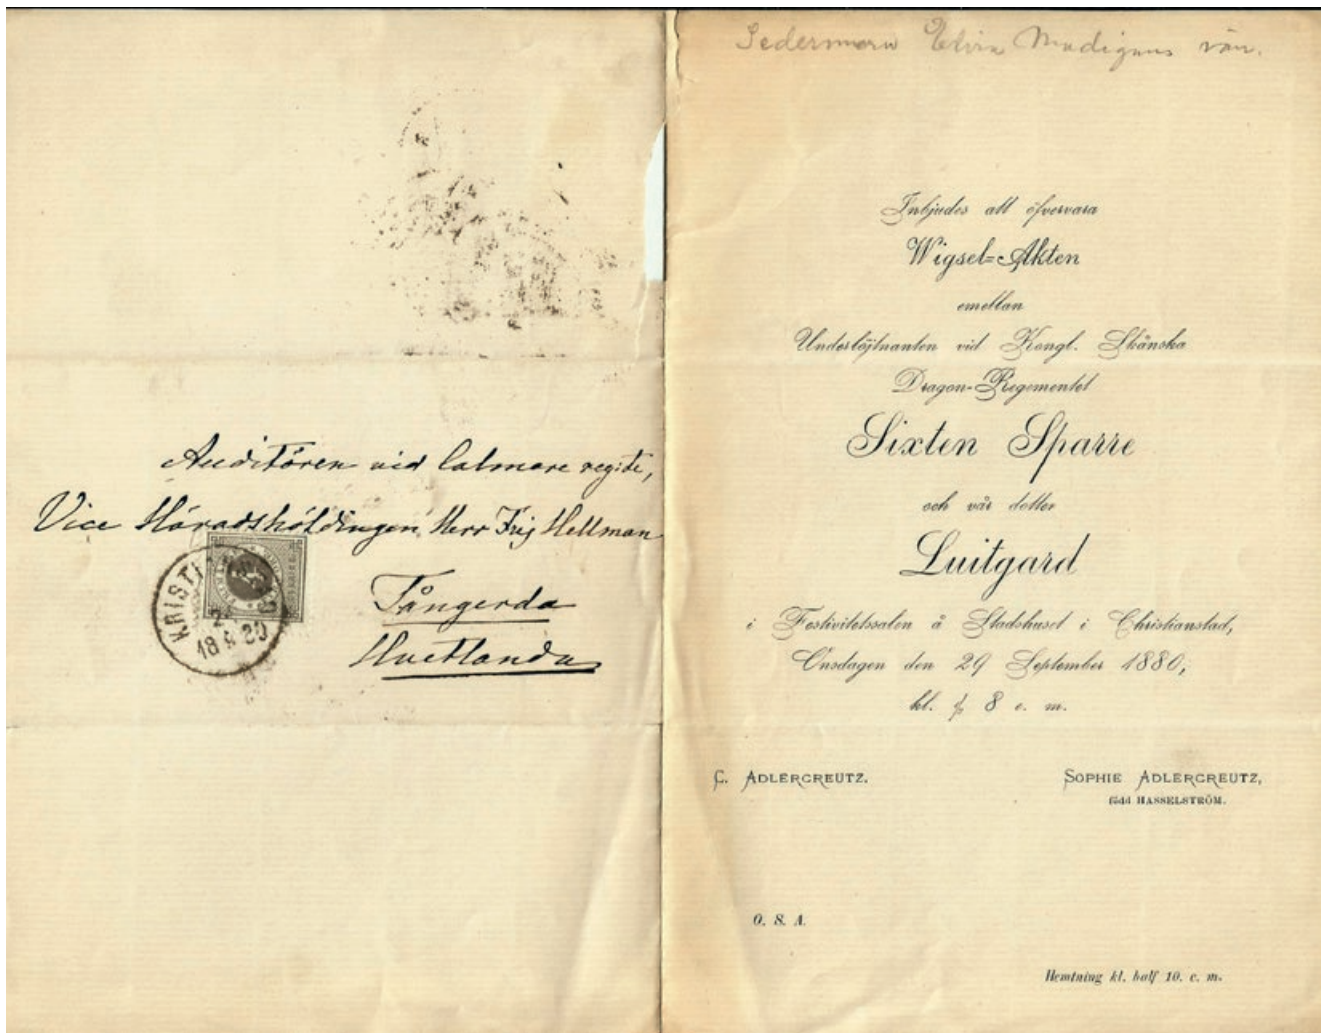 Auditören vid Calmare regite,
Vice Häradshöfdingen Herr Frij Hellman
Tångerda
Hvetlanda
KRISTI
18 80
Sedermera Elvira Madigans vän.
Inbjudes att öfvervara
Wigsel-Akten
emellan
Underlöjtnanten vid Kongl. Skånska
Dragon-Regementet
Sixten Sparre
och vår dotter
Luitgard
i Festivitetssalen å Stadshuset i Christianstad,
Onsdagen den 29 September 1880,
kl. 8 e. m.
C. ADLERCREUTZ.
SOPHIE ADLERCREUTZ,
född HASSELSTRÖM.
O. S. A.
Hemtning kl. half 10. e. m.